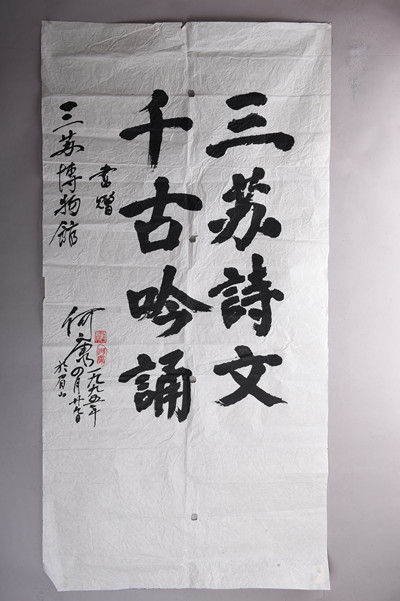 三苏詩文
千古吟誦
書赠
三苏博物館
何康
一九九五年
四月廿六日
於眉山